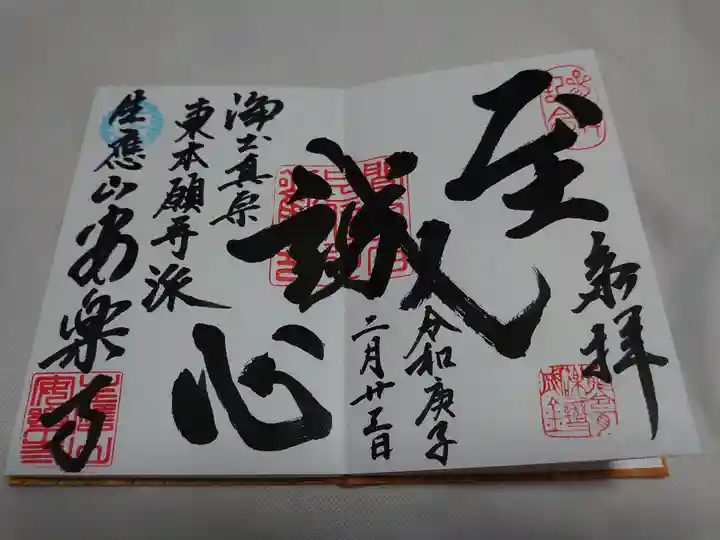 奉拝
至誠心
令和庚子
二月廿五日
浄土真宗
東本願寺派
生應山安楽寺